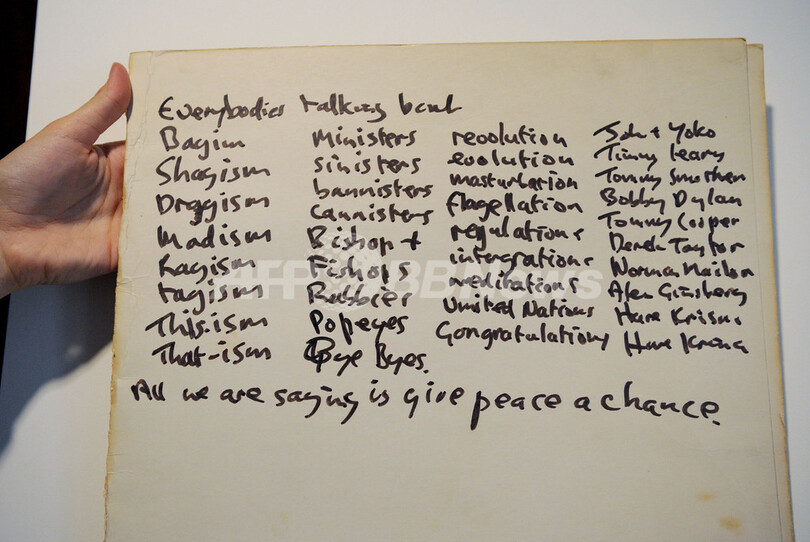 Everybodies talking bout
Bagism
Shagism
Draggism
Madism
Ragism
tagism
This-ism
That-ism
Ministers
sinisters
bannisters
cannisters
Bishop +
Fishops
Rabbier
Popeyes
Bye Byes.
revolution
evolution
masturbation
flagellation
regulations
intergrations
meditations
United Nations
Congratulations
John + Yoko
Timmy Leary
Tommy Smothers
Bobby Dylan
Tommy Cooper
Derek Taylor
Norman Mailer
Alen Ginsberg
Hare Krisna
Hare Krsna
All we are saying is give peace a chance.
AFP BBNews